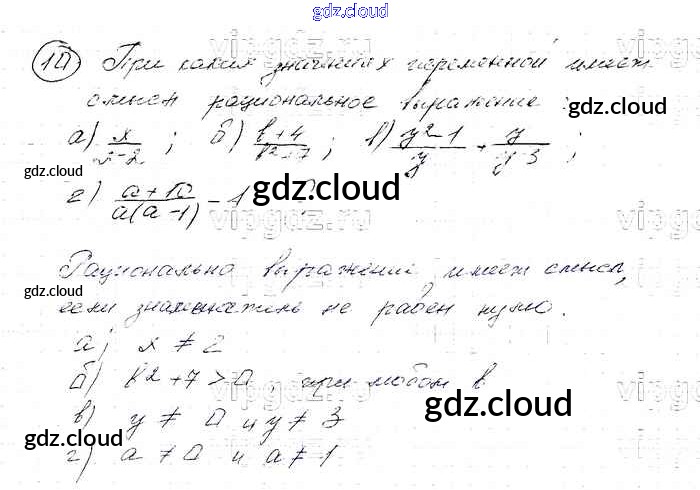 gdz.cloud
10 При каких значениях переменной имеет
смысл рациональное выражение:
а) x/(x-2); б) (b+4)/(b²+7); в) (y²-1)/y + y/(y-3);
г) (a+10)/(a(a-1)) - 1
gdz.cloud
gdz.cloud
Рационально выражение имеет смысл,
если знаменатель не равен нулю.
gdz.cloud
а) x ≠ 2
б) b²+7>0, при любом b
в) y ≠ 0 и y ≠ 3
г) a ≠ 0 и a ≠ 1
gdz.cloud
gdz.cloud